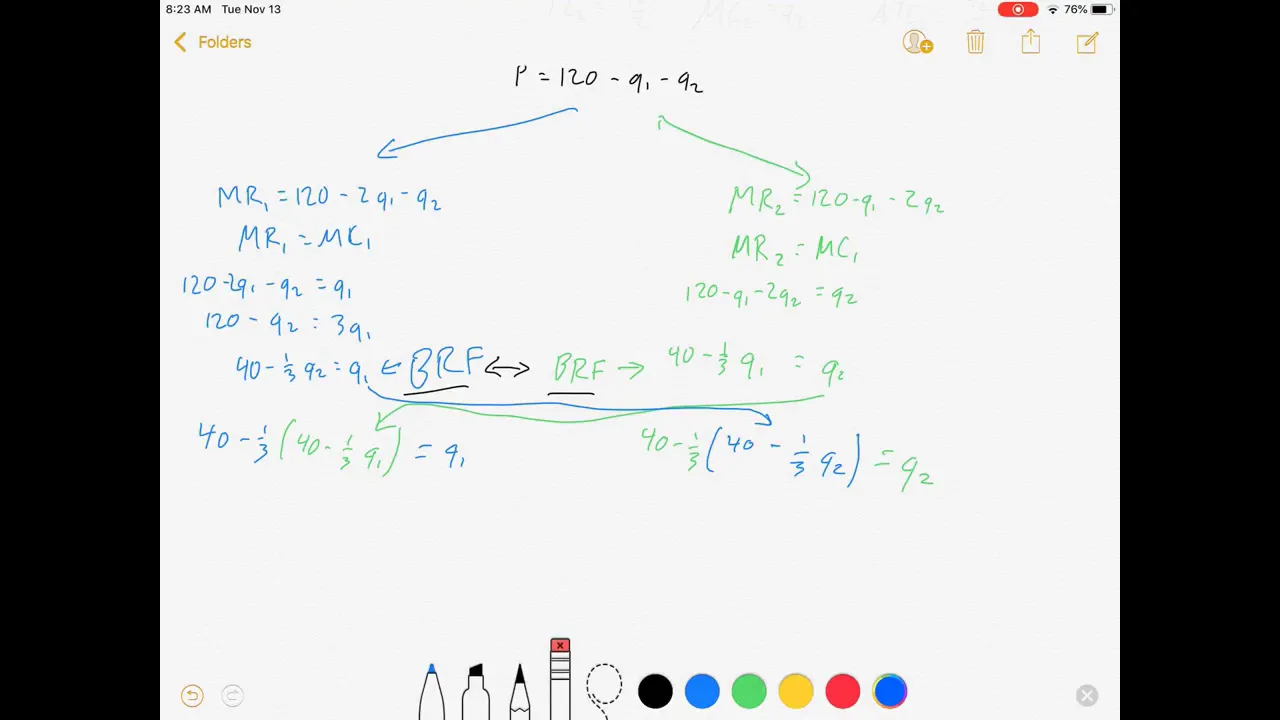 8:23 AM Tue Nov 13 76%
Folders
P = 120 - q₁ - q₂
MR₁ = 120 - 2q₁ - q₂
MR₁ = MC₁
120 - 2q₁ - q₂ = q₁
120 - q₂ = 3q₁
40 - 1/3 q₂ = q₁ ← BRF ↔ BRF → 40 - 1/3 q₁ = q₂
40 - 1/3 (40 - 1/3 q₁) = q₁
MR₂ = 120 - q₁ - 2q₂
MR₂ = MC₁
120 - q₁ - 2q₂ = q₂
40 - 1/3 (40 - 1/3 q₂) = q₂